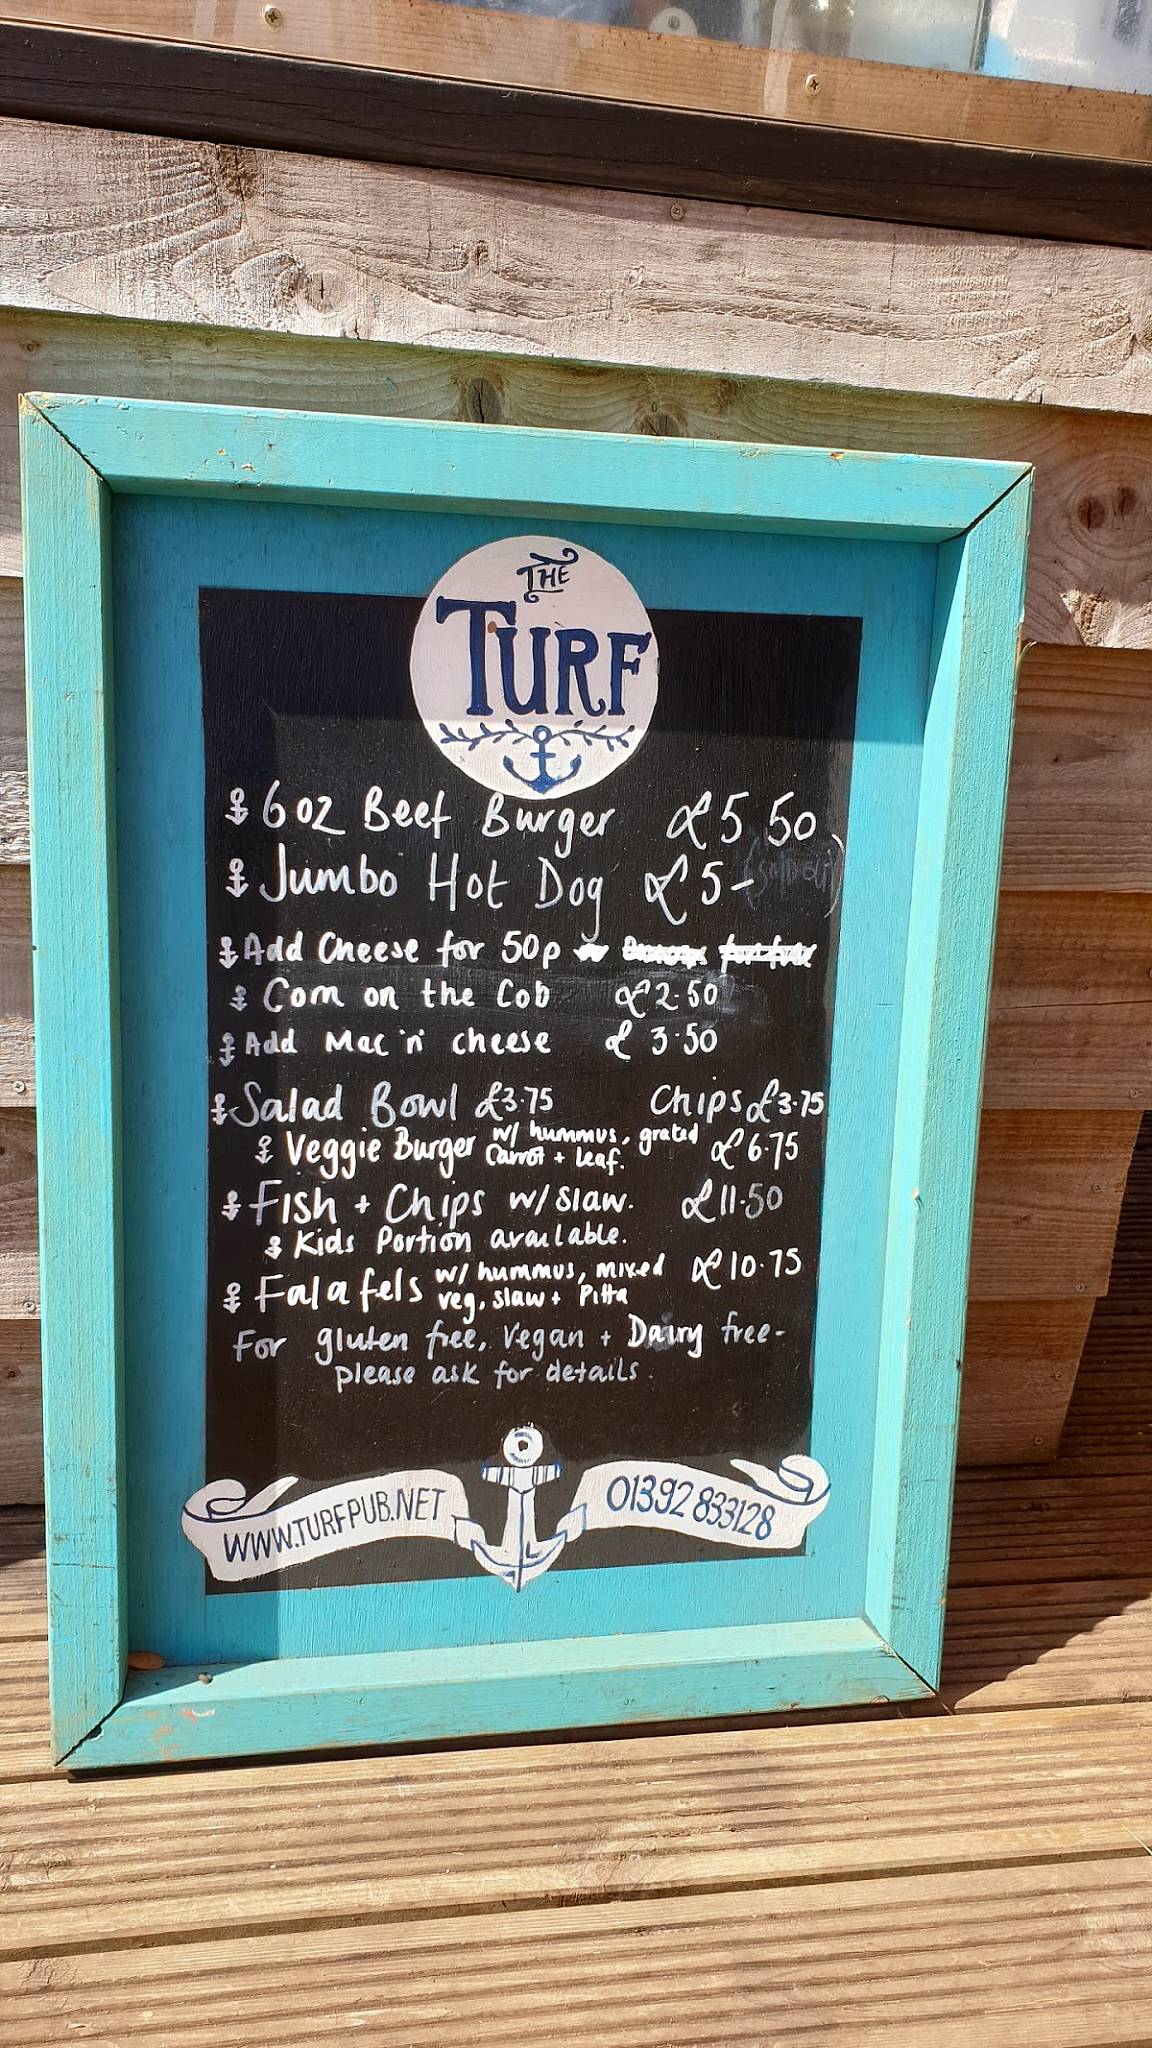 THE
TURF
6oz Beef Burger £5.50
Jumbo Hot Dog £5- (sold out)
Add Cheese for 50p
Corn on the Cob £2.50
Add Mac 'n' cheese £3.50
Salad Bowl £3.75 Chips £3.75
Veggie Burger w/ hummus, grated carrot + leaf. £6.75
Fish + Chips w/ slaw. £11.50
Kids Portion available.
Falafels w/ hummus, mixed veg, slaw + Pitta £10.75
For gluten free, Vegan + Dairy free-
please ask for details.
WWW.TURFPUB.NET 01392 833128